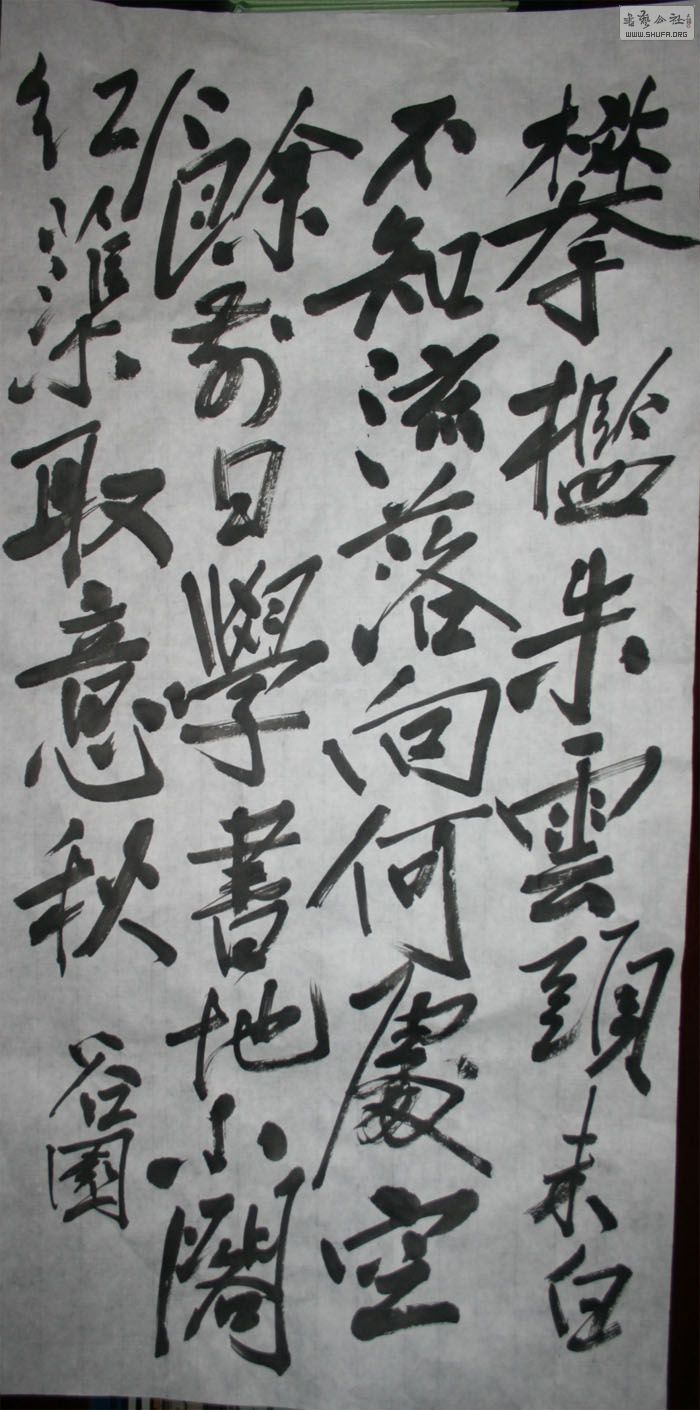 攀檻朱雲頭未白
不知流落向何處空
餘前日學書地小閣
紅蕖取意秋
谷園
書藝公社
WWW.SHUFA.ORG